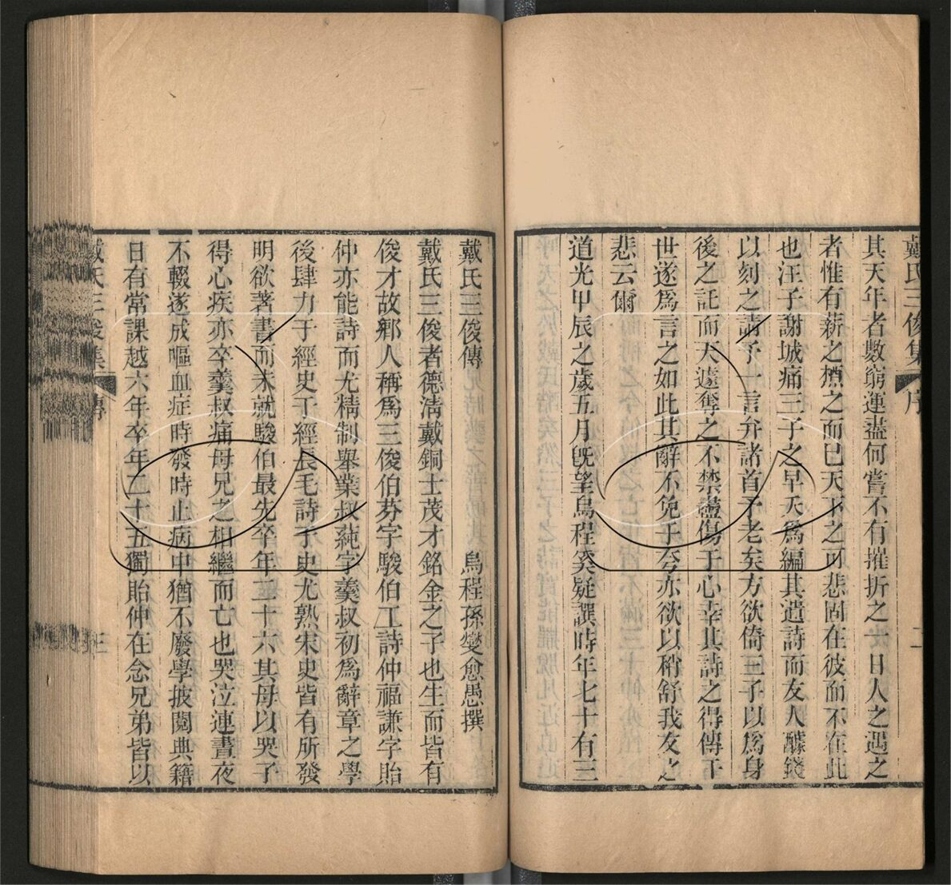 戴氏三俊集 序 二
其天年者數窮運盡何嘗不有摧折之一日人之遇之
者惟有薪之煙之而已天下之可悲固在彼而不在此
也汪子謝城痛三子之早夭為編其遺詩而友人醵錢
以刻之請予一言弁諸首予老矣方欲倚三子以為身
後之託而天遽奪之不禁盡傷于心幸其詩之得傳于
世遂為言之如此其辭不免于夸亦欲以稍舒我友之
悲云爾
道光甲辰之歲五月既望烏程奚疑譔時年七十有三
戴氏三俊傳
烏程孫燮愈愚撰
戴氏三俊者德清戴銅士茂才銘金之子也生而皆有
俊才故鄉人稱為三俊伯芬字駿伯工詩仲福謙字貽
仲亦能詩而尤精制舉業叔蒓字羹叔初為辭章之學
後肆力于經史于經長毛詩于史尤熟宋史皆有所發
明欲著書而未就駿伯最先卒年三十六其母以哭子
得心疾亦卒羹叔痛母兄之相繼而亡也哭泣連晝夜
不輟遂成嘔血症時發時止病中猶不廢學披閱典籍
日有常課越六年卒年二十五獨貽仲在念兄弟皆以
戴氏三俊集 傳 三